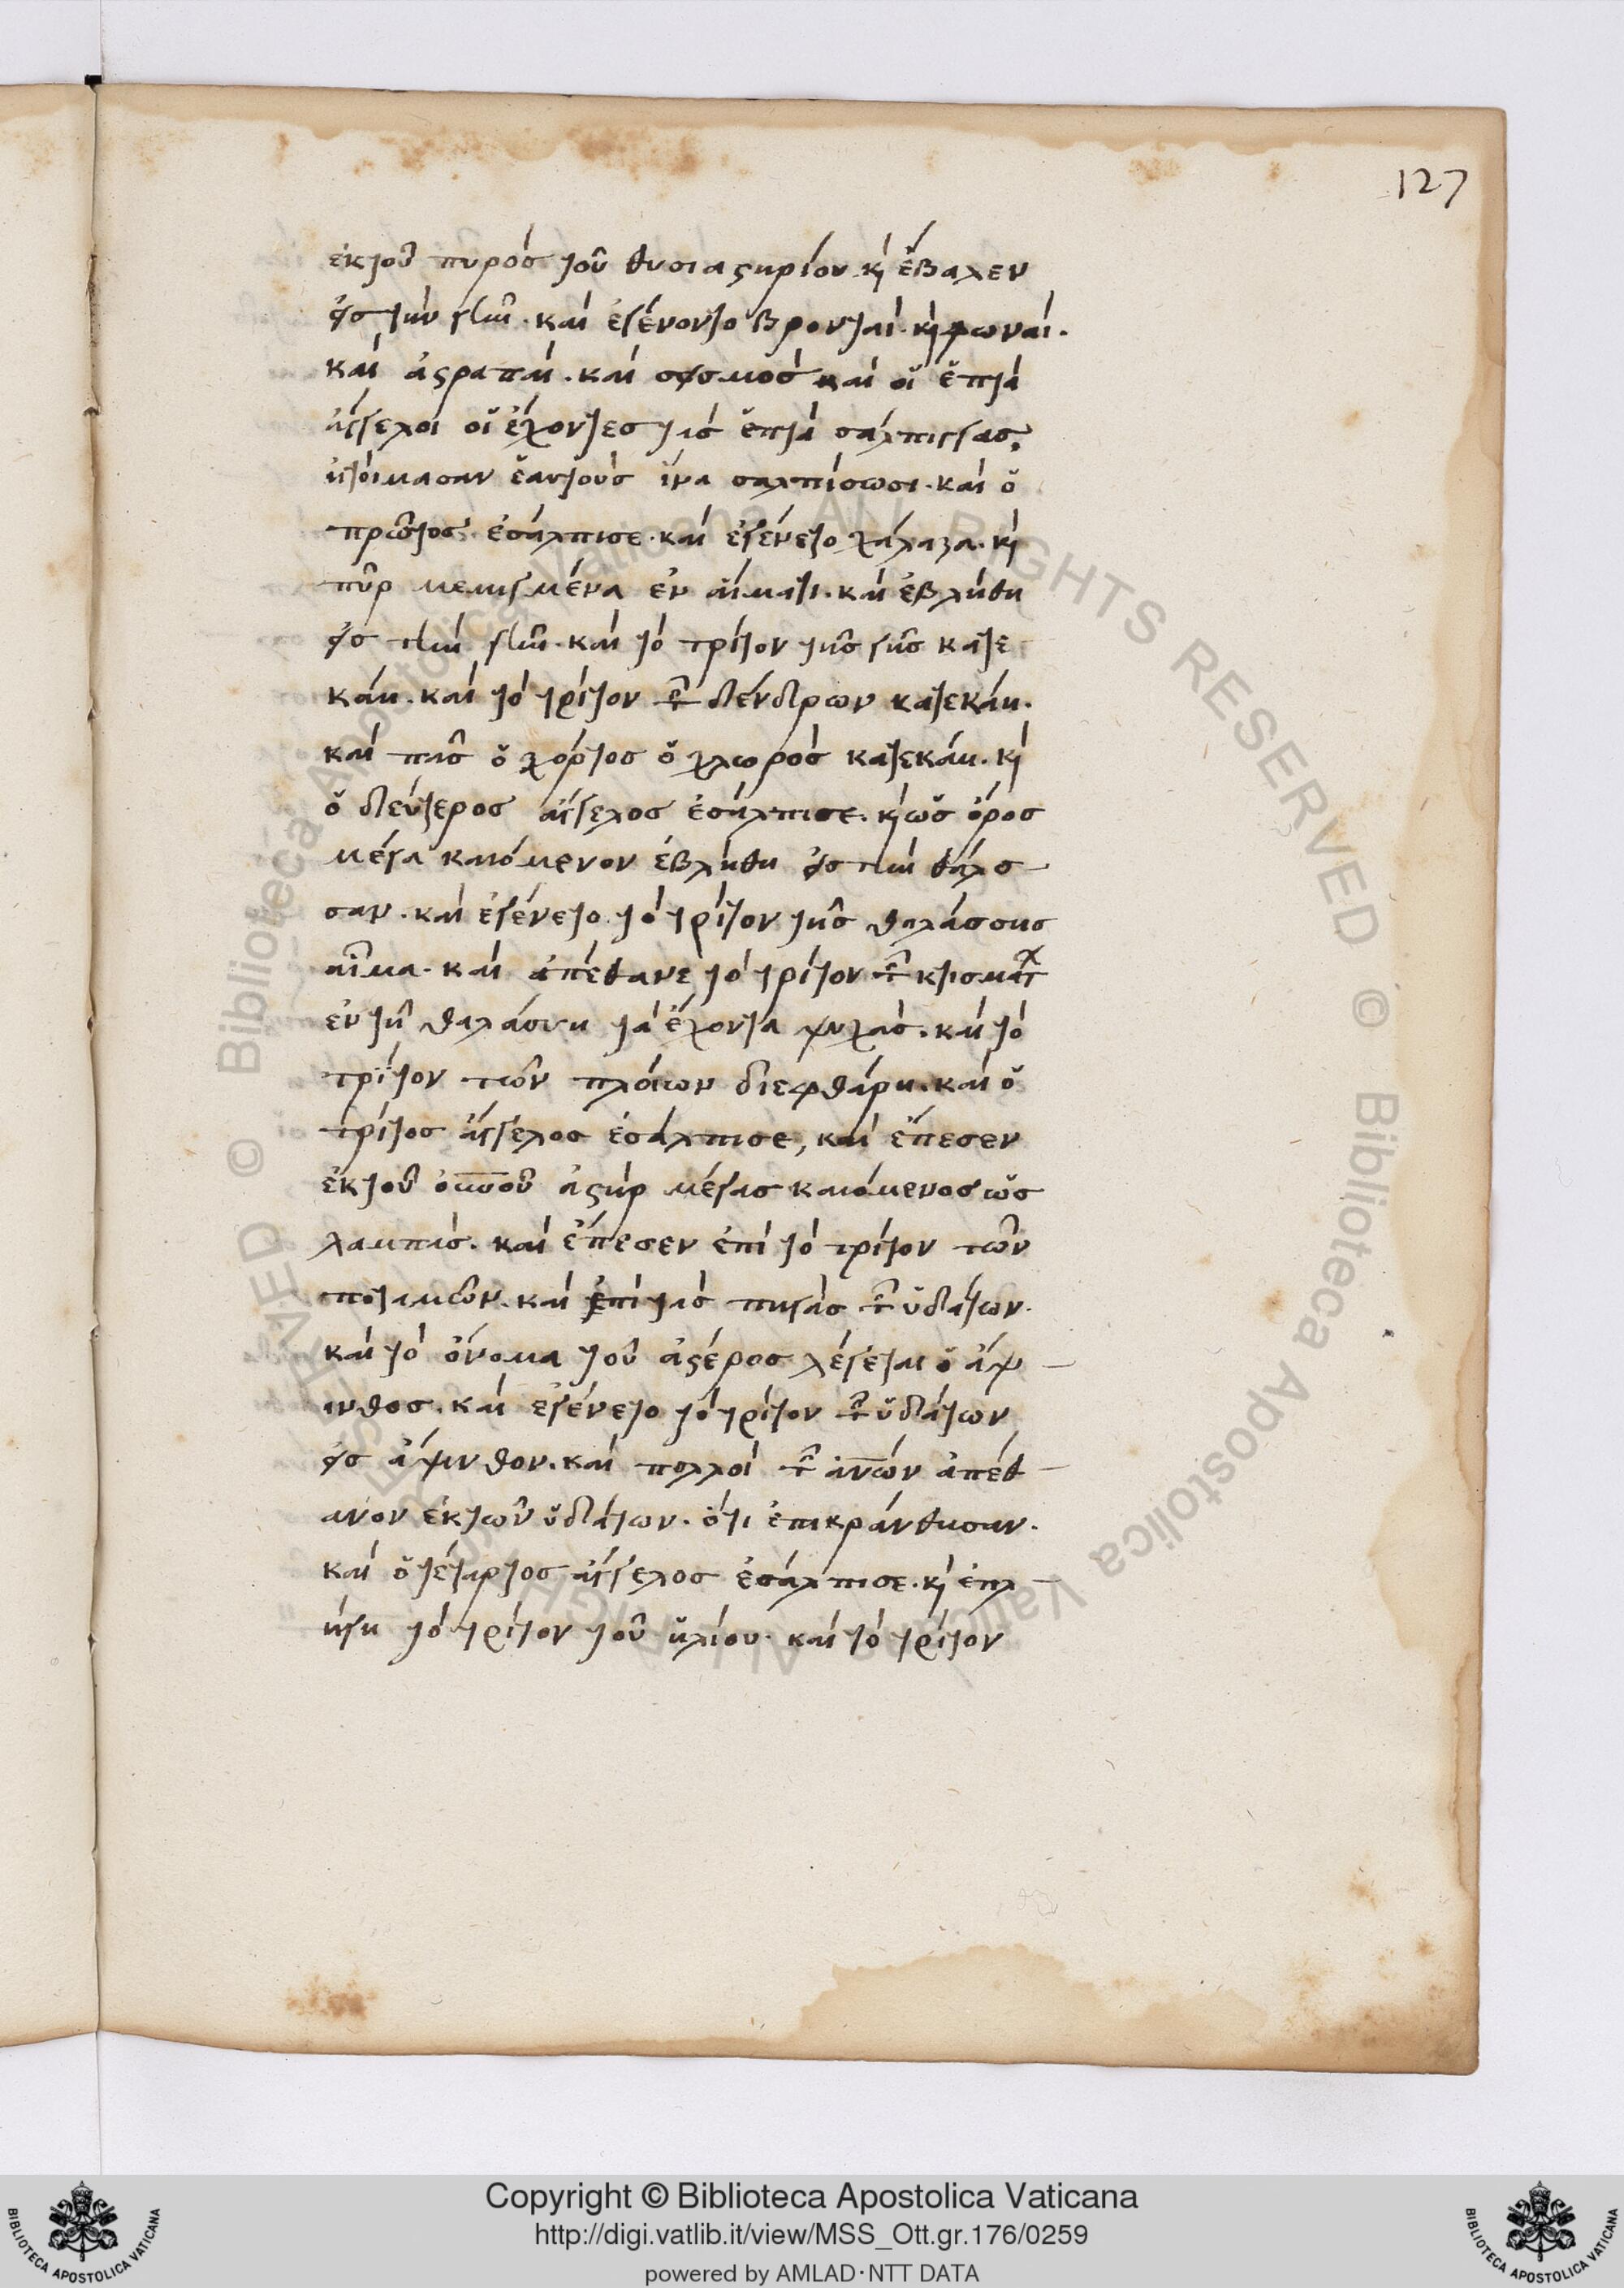 127
ἐκτοῦ πυρὸς τοῦ θυσιαστηρίου κ̀ ἔβαλεν
εἰς τὴν γῆν. καὶ ἐγένοντο βρονταὶ. κ̀ φωναί.
καὶ ἀστραπαὶ. καὶ σεισμὸς καὶ οἱ ἑπτὰ
ἄγγελοι οἱ ἔχοντες τὰς ἑπτὰ σάλπιγγας,
ἡτοίμασαν ἑαυτοὺς ἵνα σαλπίσωσι. καὶ ὁ
πρῶτος ἐσάλπισε. καὶ ἐγένετο χάλαζα. κ̀
πῦρ μεμιγμένα ἐν αἵματι. καὶ ἐβλήθη
εἰς τὴν γῆν. καὶ τὸ τρίτον τῆς γῆς κατε
κάη. καὶ τὸ τρίτον τῶν δένδρων κατεκάη.
καὶ πᾶς ὁ χόρτος ὁ χλωρὸς κατεκάη. κ̀
ὁ δεύτερος ἄγγελος ἐσάλπισε. κ̀ ὡς ὄρος
μέγα καιόμενον ἐβλήθη εἰς τὴν θάλσ
σαν. καὶ ἐγένετο τὸ τρίτον τῆς θαλάσσης
αἷμα. καὶ ἀπέθανε τὸ τρίτον τῶν κτισμάτων
ἐν τῆ θαλάσση τὰ ἔχοντα ψυχὰς. καὶ τὸ
τρίτον τῶν πλοίων διεφθάρη. καὶ ὁ
τρίτος ἄγγελος ἐσάλπισε, καὶ ἔπεσεν
ἐκτοῦ οὐνοῦ ἀστὴρ μέγας καιόμενος ὡς
λαμπὰς. καὶ ἔπεσεν ἐπὶ τὸ τρίτον τῶν
ποταμῶν. καὶ ἐπὶ τὰς πηγὰς τῶν ὑδάτων.
καὶ τὸ ὄνομα τοῦ ἀστέρος λέγεται ὁ ἄψ
ινθος. καὶ ἐγένετο τὸ τρίτον τῶν ὑδάτων
εἰς ἄψινθον. καὶ πολλοὶ τῶν ἀνῶν ἀπέθ
ανον ἐκτῶν ὑδάτων. ὅτι ἐπικράνθησαν.
καὶ ὁ τέταρτος ἄγγελος ἐσάλπισε. κ̀ ἐπλ
ήγη τὸ τρίτον τοῦ ἡλίου. καὶ τὸ τρίτον
Copyright © Biblioteca Apostolica Vaticana
http://digi.vatlib.it/view/MSS_Ott.gr.176/0259
powered by AMLAD·NTT DATA